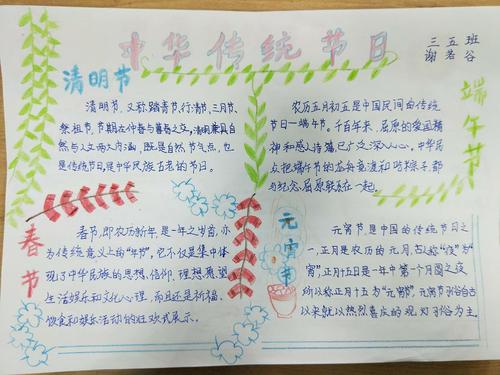 中华传统节日
三五班
谢若谷
清明节
清明节,又称踏青节、行清节、三月节、
祭祖节,节期在仲春与暮春之交,清明兼具自
然与人文两大内涵,既是自然节气点,也
是传统节日,是中华民族古老的节日。
端午节
农历五月初五是中国民间的传统
节日一端午节。千百年来,屈原的爱国精
神和感人诗篇,已广泛深入人心。中华民
众把端午节的龙舟竞渡和吃粽子,都
与纪念屈原联系在一起。
春节
春节,即农历新年,是一年之岁首,亦
为传统意义上的"年节",它不仅是集中体
现了中华民族的思想,信仰,理想愿望
生活娱乐和文化心理,而且还是祈福,
饮食和娱乐活动的狂欢式展示。
元宵节
元宵节,是中国的传统节日之
一,正月是农历的元月,古人称"夜"为"
宵",正月十五日是一年中第一个月圆之夜
所以称正月十五为"元宵节",元宵节习俗自古
以来就以热烈喜庆的观灯习俗为主。